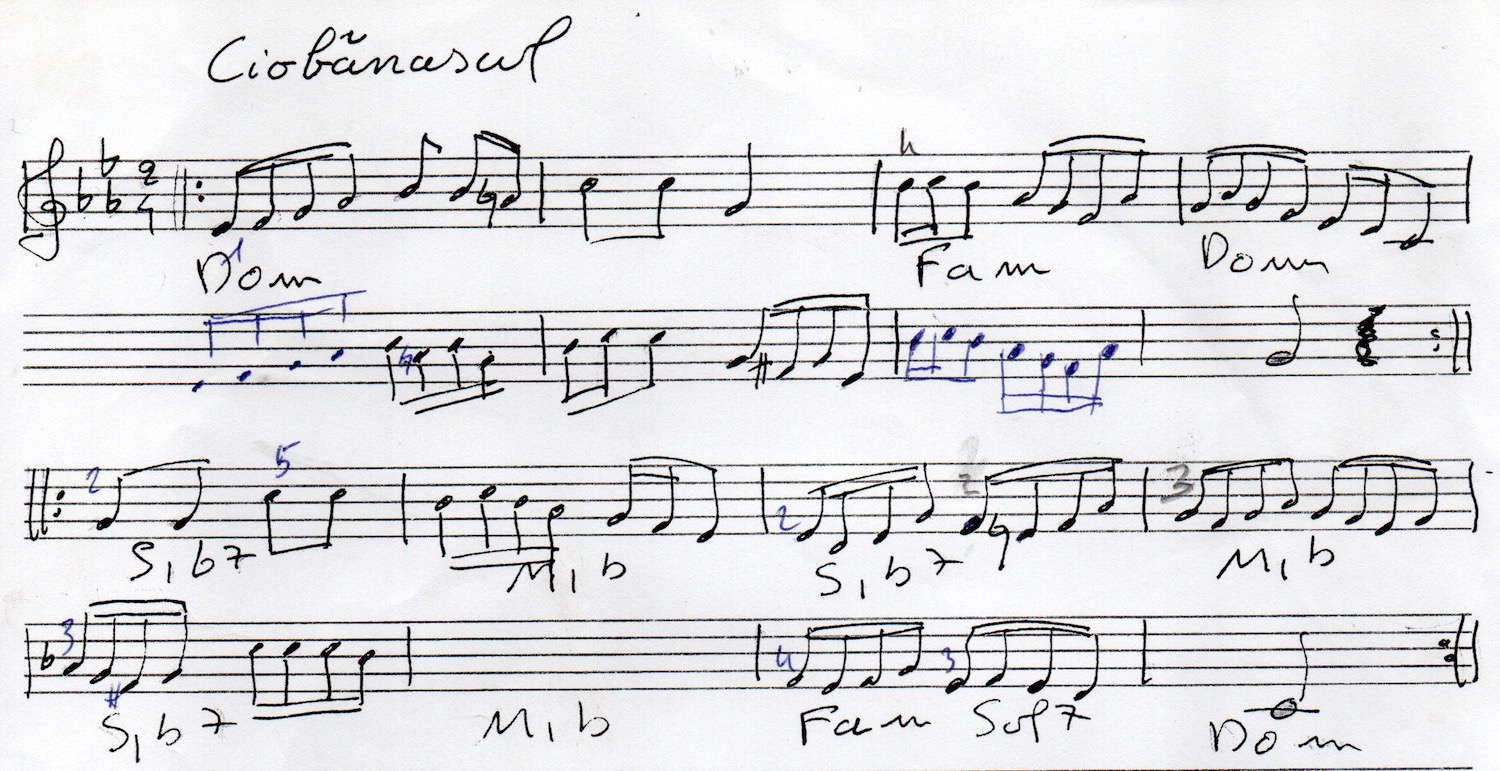 Ciobănasul
2
4
4
Dom Fam Dom
2 5
2 3
Sib7 Mib Sib7 Mib
3 4 3
Sib7 Mib Fam Sol7 Dom